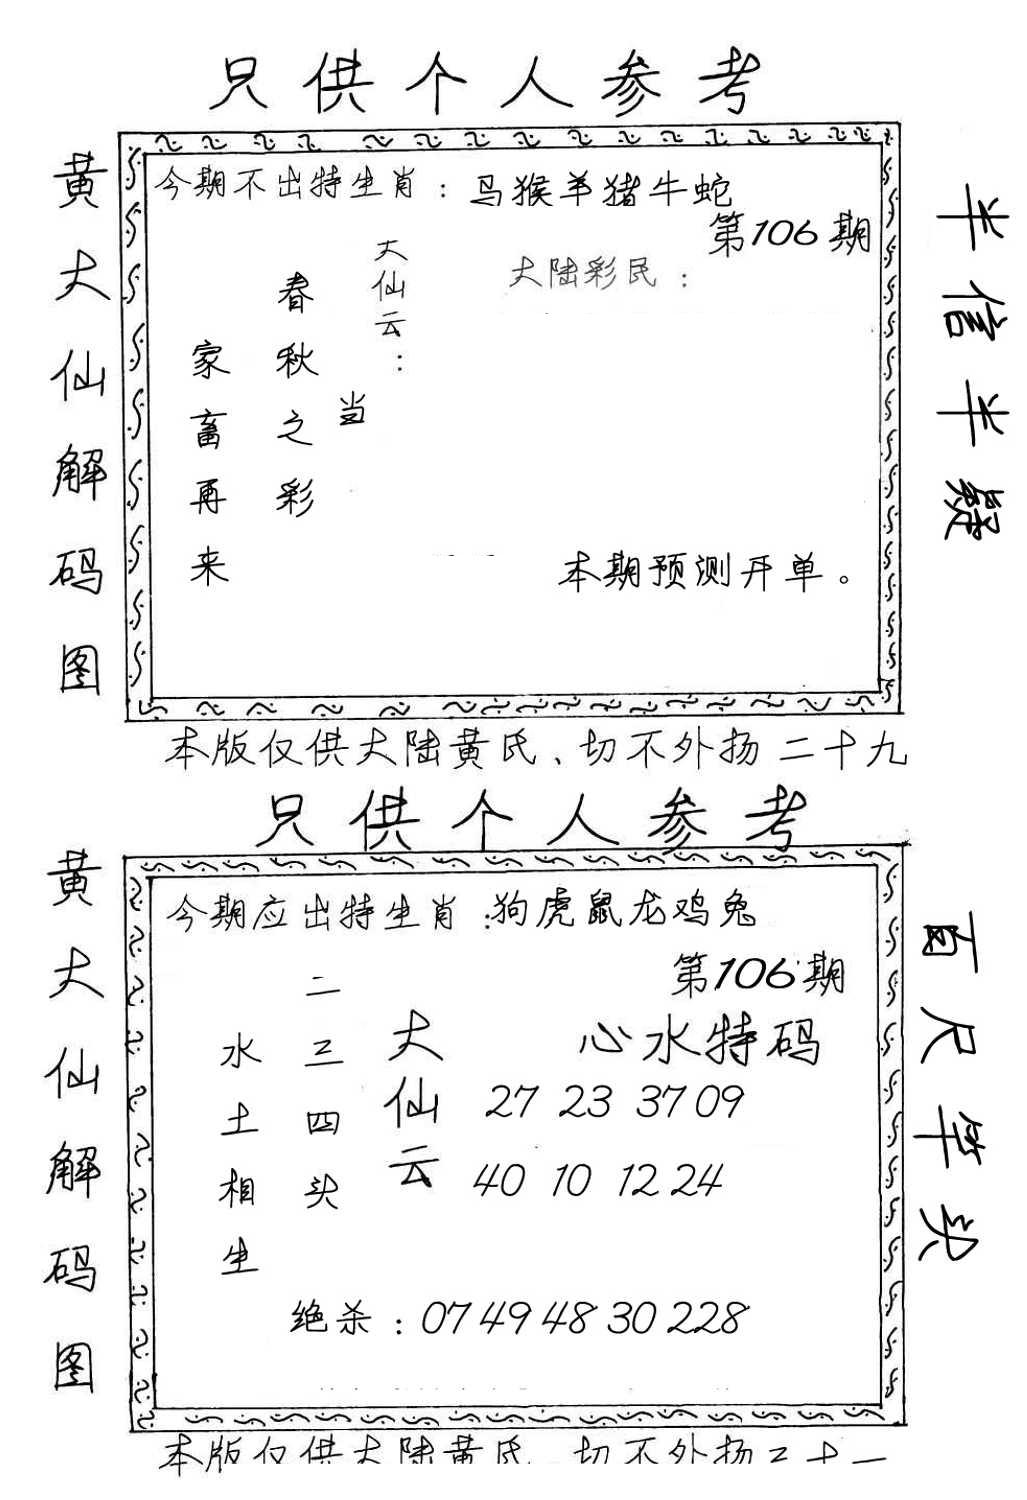 只供个人参考
黄大仙解码图
今期不出特生肖：马猴羊猪牛蛇
第106期
大仙云：
大陆彩民：
当
春秋之彩
家畜再来
本期预测开单。
半信半疑
本版仅供大陆黄氏、切不外扬二十九
只供个人参考
黄大仙解码图
今期应出特生肖：狗虎鼠龙鸡兔
第106期
心水特码
大仙云
27 23 37 09
40 10 12 24
二三四头
水土相生
绝杀：07 49 48 30 228
百尺竿头
本版仅供大陆黄氏 切不外扬三十一